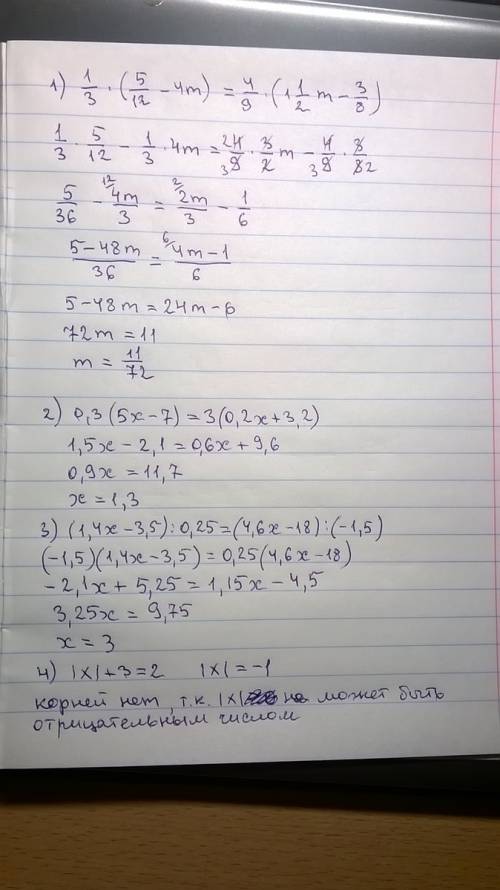 1) 1/3 · (5/12 − 4m) = 4/9 · (1 1/2 m − 3/8)
1/3 · 5/12 − 1/3 · 4m = 4/9 · 3/2 m − 4/9 · 3/8
5/36 − 4m/3 = 2m/3 − 1/6
(5−48m)/36 = (4m−1)/6
5−48m = 24m−6
72m = 11
m = 11/72
2) 0,3(5x−7) = 3(0,2x+3,2)
1,5x − 2,1 = 0,6x + 9,6
0,9x = 11,7
x = 1,3
3) (1,4x−3,5):0,25=(4,6x−18):(−1,5)
(−1,5)(1,4x−3,5) = 0,25(4,6x−18)
−2,1x + 5,25 = 1,15x − 4,5
3,25x = 9,75
x = 3
4) |x|+3=2 |x|=−1
корней нет, т.к. |x| не может быть
отрицательным числом